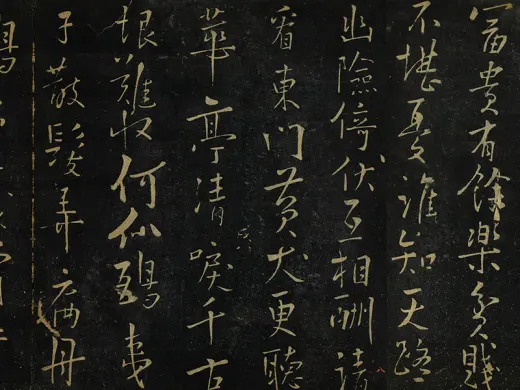 富貴有餘樂貧賤
不堪憂誰知天路
幽險倚伏互相酬請
看東門黃犬更聽
華亭清唳千古
恨難收何似鴟夷
子散髮弄扁舟